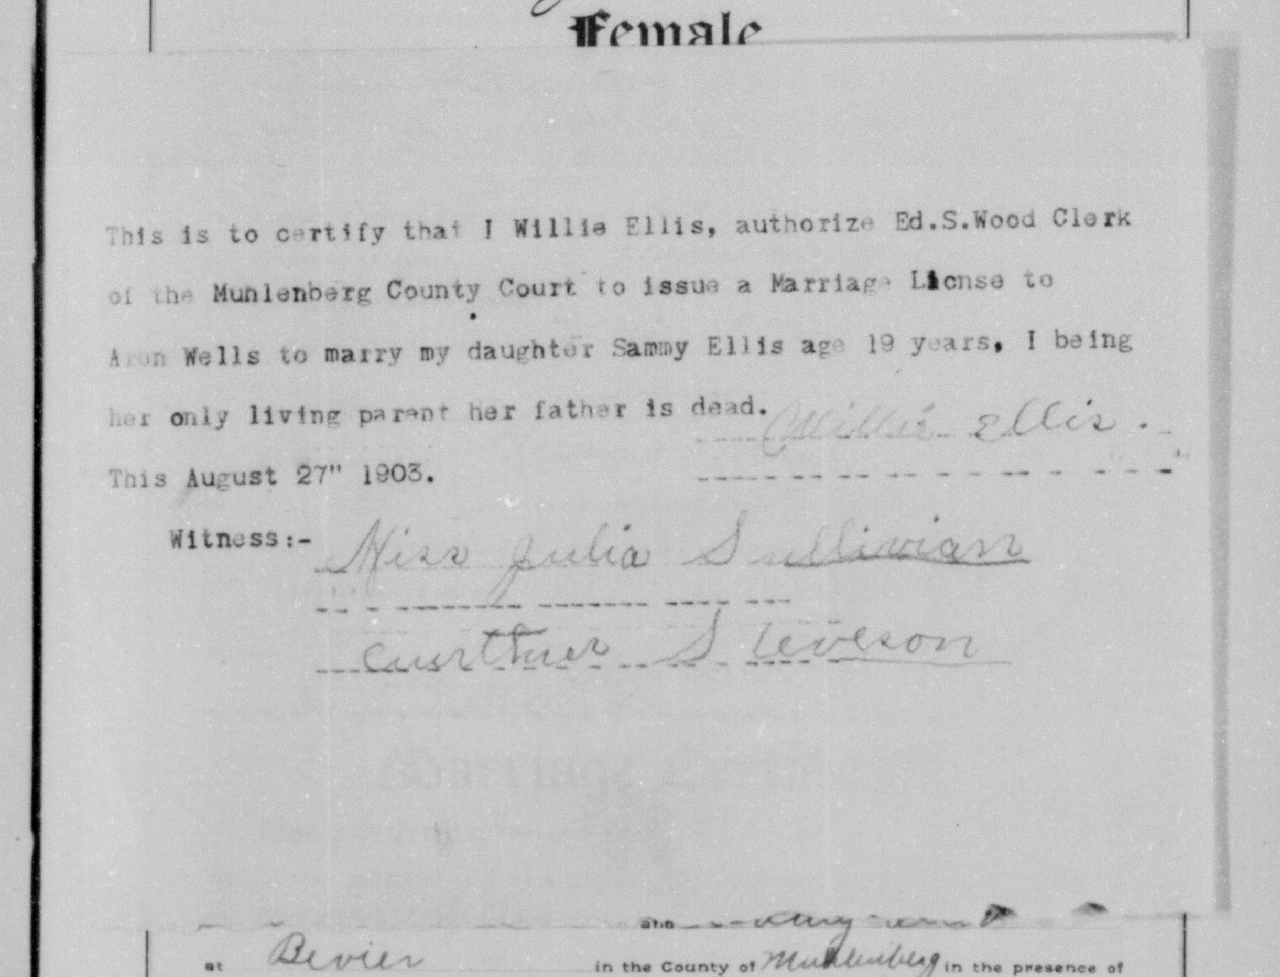 Female
This is to certify that I Willie Ellis, authorize Ed.S.Wood Clerk
of the Muhlenberg County Court to issue a Marriage Licnse to
Aron Wells to marry my daughter Sammy Ellis age 19 years. I being
her only living parent her father is dead.
Willie Ellis.
This August 27" 1903.
Witness:- Miss Julia Sullivian
Curthner Steveson
and
at Bevier in the County of Muhlenberg in the presence of